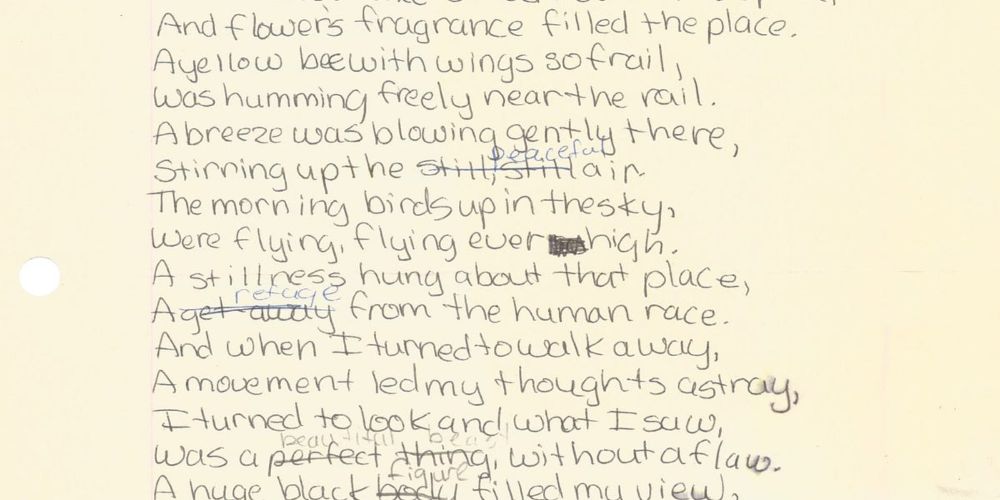 And flowers fragrance filled the place.
A yellow bee with wings so frail,
Was humming freely near the rail.
A breeze was blowing gently there,
peaceful
Stirring up the still, still air.
The morning birds up in the sky,
Were flying, flying ever high.
A stillness hung about that place,
refuge
A get away from the human race.
And when I turned to walk away,
A movement led my thoughts astray,
I turned to look and what I saw,
beautiful beast
Was a perfect thing, without a flaw.
figure
A huge black body filled my view,